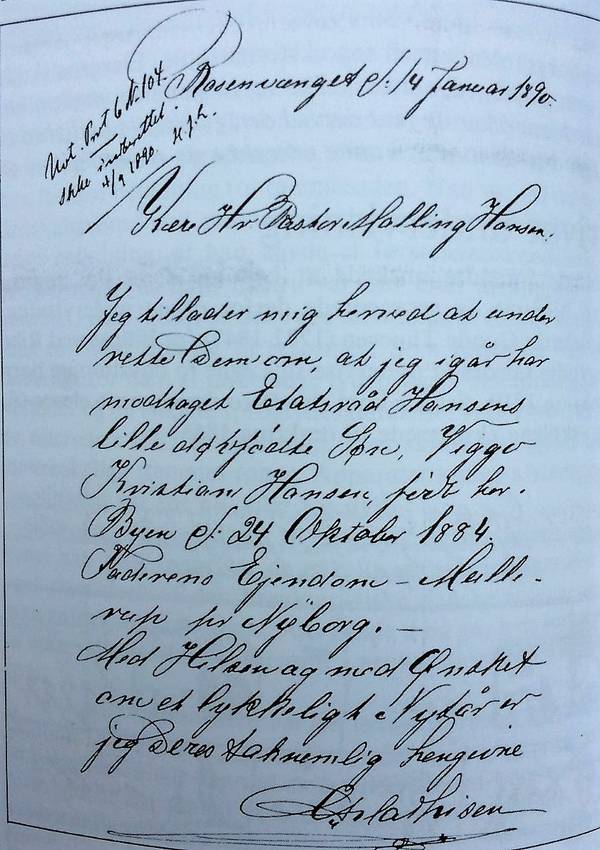 Not. Prot 6 No 104.
Ikke indsattet.
4/9 1890. M.J.H.
Rosenvænget d. 14 Januar 1890.
Kære Hr Pastor Malling Hansen.
Jeg tillader mig herved at under
rette Dem om, at jeg igår har
modtaget Etatsråd Hansens
lille døvfödte Søn, Viggo
Kristian Hansen, födt her i
Byen d. 24 Oktober 1884.
Faderens Ejendom – Mulle-
rup pr Nÿborg. —
Med Hilsen og med Ønsket
om et lykkeligt Nytår er
jeg Deres taknemlig hengivne